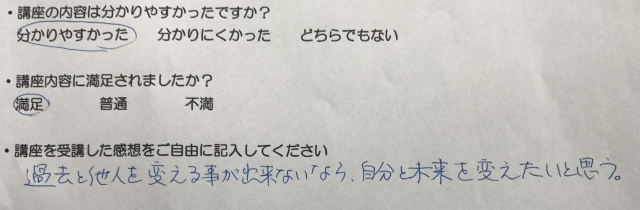 ・講座の内容は分かりやすかったですか？
分かりやすかった 分かりにくかった どちらでもない
・講座内容に満足されましたか？
満足 普通 不満
・講座を受講した感想をご自由に記入してください
過去と他人を変える事が出来ないなら、自分と未来を変えたいと思う。